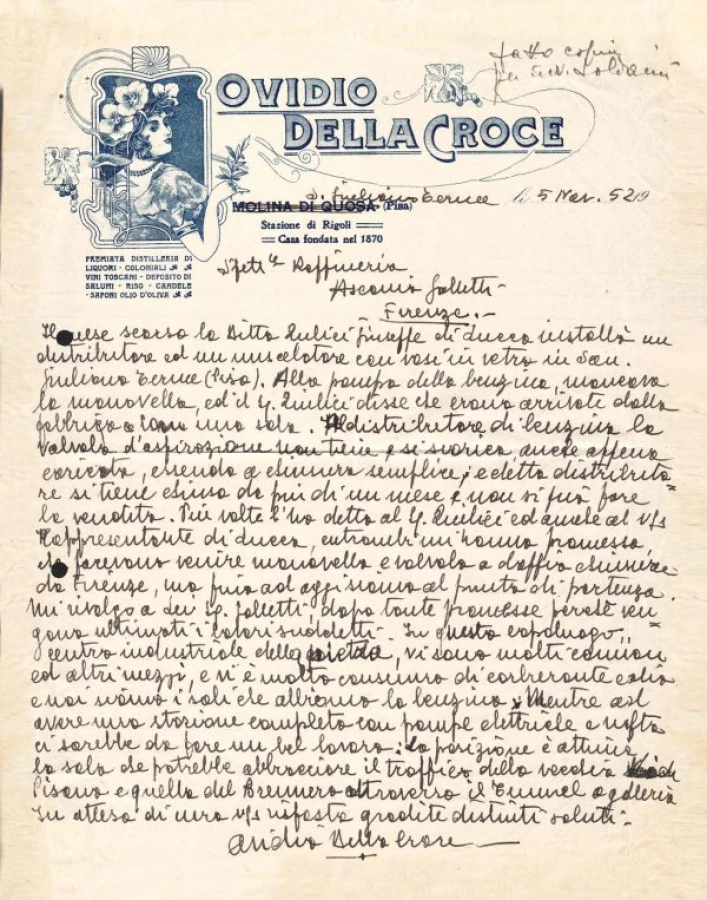 fatto copia
OVIDIO
DELLA CROCE
MOLINA DI QUOSA (Pisa)
S. Giuliano Terme li 5 Nov. 52 19
Stazione di Rigoli
Casa fondata nel 1870
PREMIATA DISTILLERIA DI
LIQUORI - COLONIALI
VINI TOSCANI - DEPOSITO DI
SALUMI - RISO - CANDELE
- SAPONI OLIO D'OLIVA
Spett le Raffineria
Ascanio Galletti
Firenze.-
Il mese scorso la Ditta Giulici Giuseppe di Lucca installò un
distributore ed un miscelatore con vasi in vetro in San.
Giuliano Terme (Pisa). Alla pompa della benzina, mancava
la manovella, ed il S. Giulici disse che erano arrivate dalla
fabbrica con una sola. Al distributore di benzina la
valvola d'aspirazione non tiene e si scarica, anche appena
caricata, essendo a chiusura semplice, e detto distributo=
re si tiene chiuso da più di un mese e non si può fare
la vendita. Più volte l'ho detto al S. Giulici ed anche al V/s
Rappresentante di Lucca, entrambi mi hanno promesso,
che facevano venire manovella e valvola a doppia chiusura
da Firenze, ma fino ad oggi siamo al punto di partenza.
Mi rivolgo a Lei S. Galletti, dopo tante promesse perché ven
gano ultimati i lavori suddetti. In questo capoluogo,
centro industriale della pietra, vi sono molti camion
ed altri mezzi, e vi è molto consumo di carburante e olio
e noi siamo i soli che abbiamo la benzina. Mentre ad
avere una stazione completa con pompe elettriche e nafta
ci sarebbe da fare un bel lavoro: la posizione è ottima
la sola che potrebbe abbracciare il traffico della vecchia
Pisana e quella del Brennero attraverso il Tunnel o galleria
In attesa di una V/s risposta gradite distinti saluti.-
Ovidio Della Croce